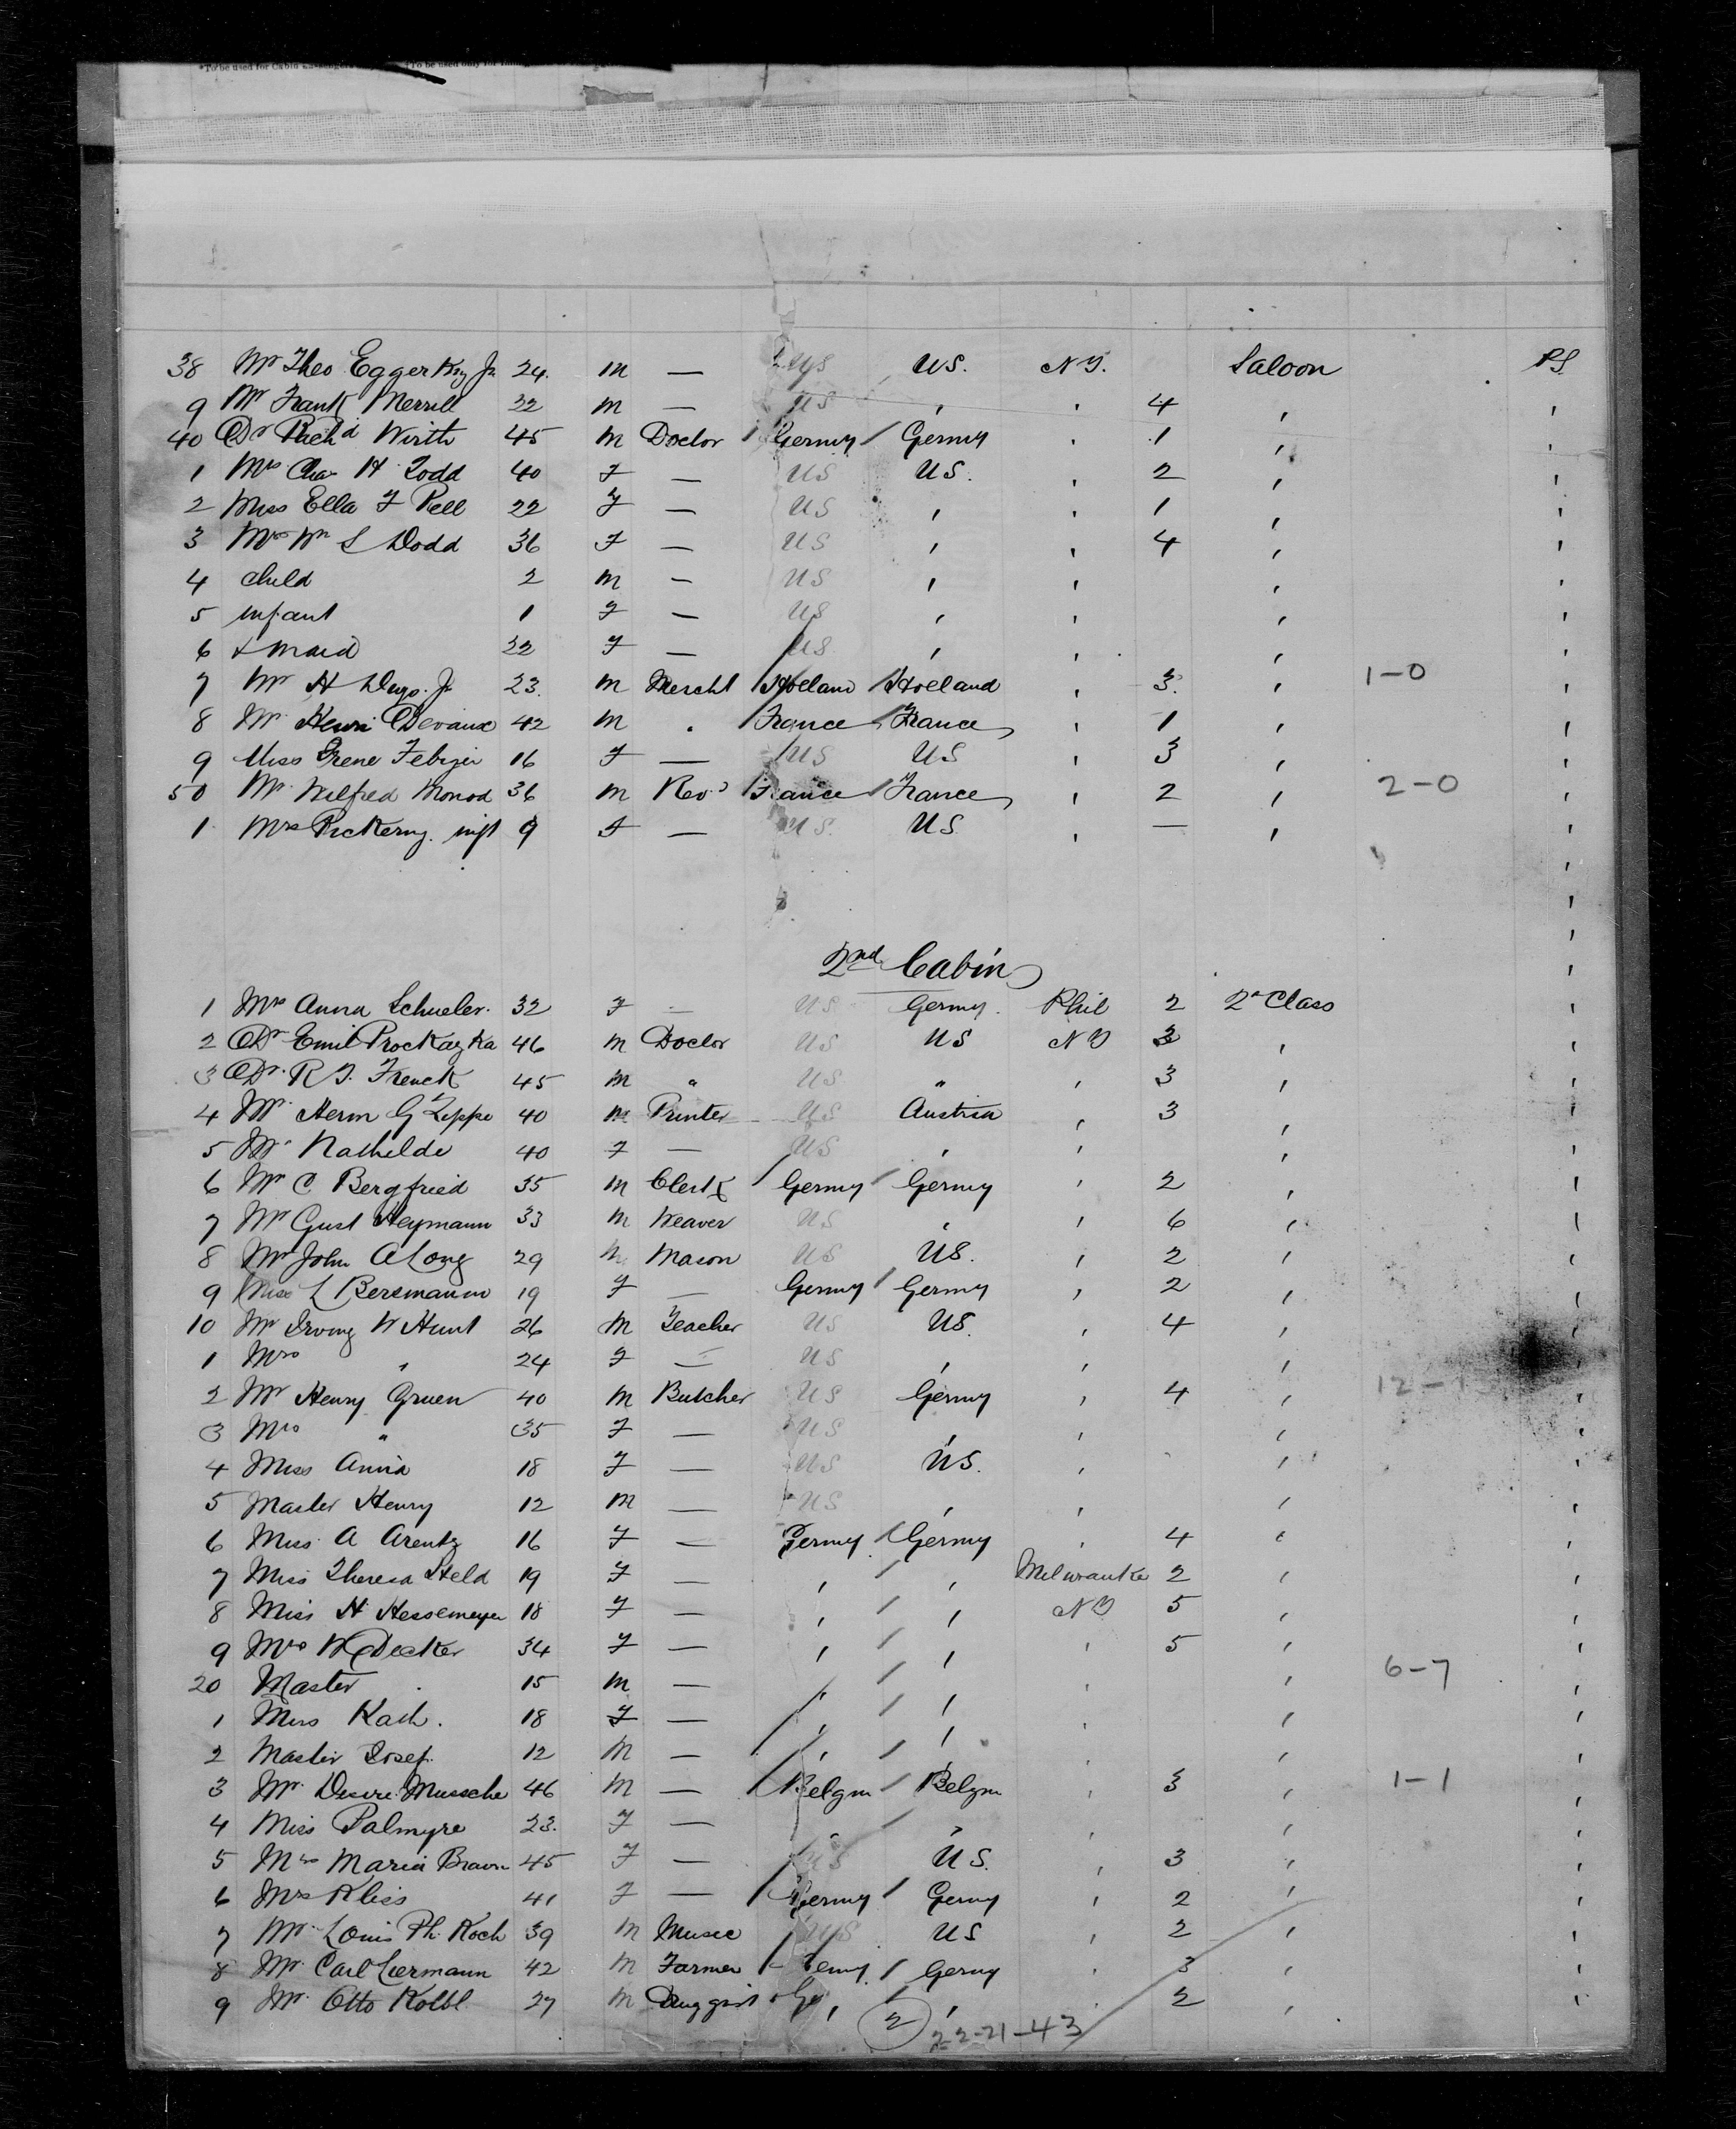 *To be used for Cabin
38 Mr Theo Eggerking Jr 24. m — US US. N Y. Saloon P.S.
9 Mr Frank Merrill 22 m — US , , 4 , ,
40 Dr Rich'd Wirth 45 m Doctor / Germy / Germy , 1 , ,
1 Mrs Chas H. Todd 40 F — US US. , 2 , ,
2 Miss Ella F Rell 22 F — US , , 1 , ,
3 Mrs Wm S Dodd 36 F — US , , 4 , ,
4 child 2 m — US , , , ,
5 infant 1 F — US , , , ,
6 & maid 22 F — US , , , ,
7 Mr H Jr 23. m Mercht / Holland / Holland , 3. , 1-0 ,
8 Mr Henri Devaux 42 m . / France / France , 1 , ,
9 Miss Irene Febiger 16 F — US US , 3 , ,
50 Mr Wilfred Monod 36 m Revd / France / France , 2 , 2-0 ,
1 Mrs Pickering. inft 9 F — US. US , — , ,
2nd Cabin
1 Mrs Anna Schueler. 32 F — US Germy. Phil 2 2d Class ,
2 Dr Emil Prockazka 46 m Doctor US US N Y 3 , ,
3 Dr. R T. French 45 m " US " , 3 , ,
4 Mr. Herm G Zeppe 40 m Printer US Austria , 3 , ,
5 Mr Mathilde 40 F — US , , , ,
6 Mr C Bergfried 35 m Clerk / Germy / Germy , 2 , ,
7 Mr Gust Heymann 33 m Weaver US , , 6 , ,
8 Mr John A Long 29 m Mason US US. , 2 , ,
9 Miss L Bersmann 19 F — Germy / Germy , 2 , ,
10 Mr Irving W Hunt 26 m Teacher US US. , 4 , ,
1 Mrs " 24 F — US , , , ,
2 Mr Henry Gruen 40 m Butcher US Germy , 4 , 12-1 ,
3 Mrs " 35 F — US , , , ,
4 Miss Anna 18 F — US US. , , ,
5 Master Henry 12 m — US , , , ,
6 Miss A Arentz 16 F — Germy. / Germy , 4 , ,
7 Miss Theresa Held 19 F — , / , Milwaukee 2 , ,
8 Miss H Hessemeyer 18 F — , / , N Y 5 , ,
9 Mrs W Decker 34 F — , / , , 5 , ,
20 Master . 15 m — , / , , , 6-7 ,
1 Miss Kath. 18 F — , / , , , ,
2 Master Josef. 12 m — , / , , , ,
3 Mr. Desire Mussche 46 m — / Belgm / Belgm , 3 , 1-1 ,
4 Miss Palmyre 23. F — , / , , , ,
5 Mrs Maria Braun 45 F — US U S. , 3 , ,
6 Mrs Kliss 41 F — / Germy / Germy , 2 , ,
7 Mr. Louis Ph. Koch 39 m Music US US , 2 , ,
8 Mr. Carl Liermann 42 m Farmer / Germy / Germy , 3 , ,
9 Mr. Otto Kolbl 27 m Druggist , , , 2 , ,
2 22-21-43